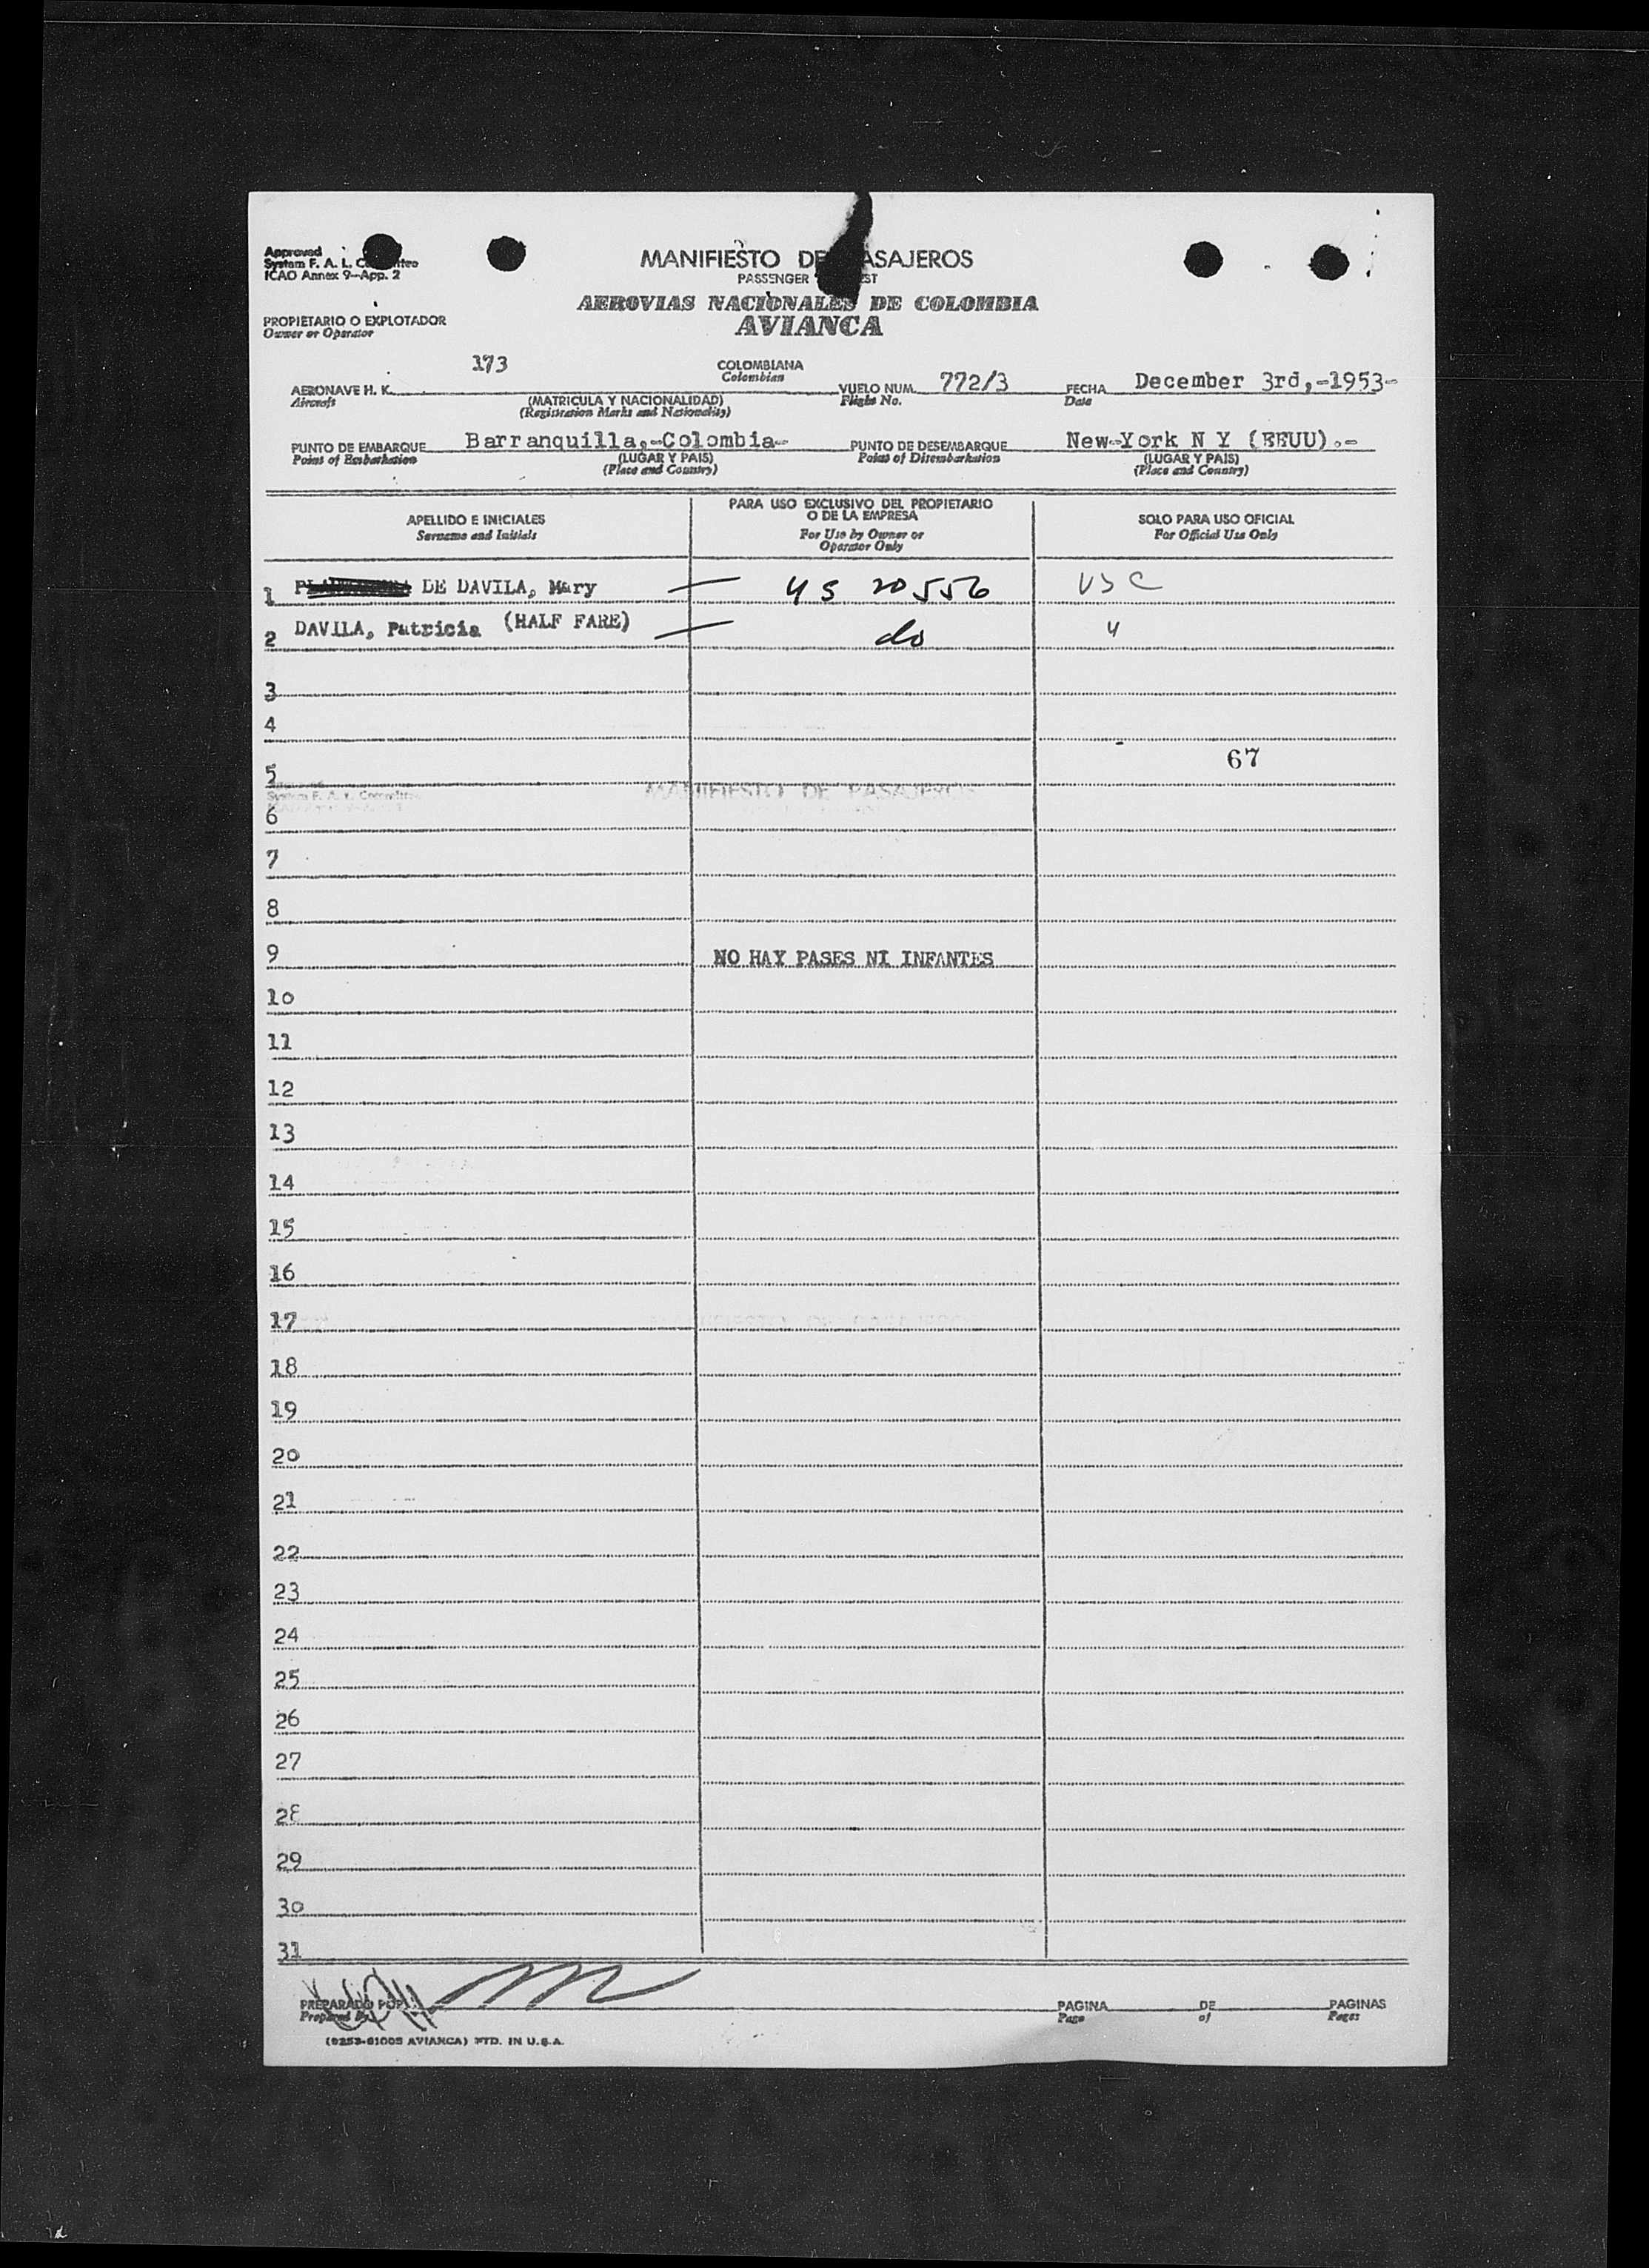 Approved
System F. A. L.
ICAO Annex 9-App. 2
MANIFIESTO DE PASAJEROS
PASSENGER
AEROVIAS NACIONALES DE COLOMBIA
AVIANCA
PROPIETARIO O EXPLOTADOR
Owner or Operator
173
COLOMBIANA
Colombian
AERONAVE H. K.
Aircraft
(MATRICULA Y NACIONALIDAD)
(Registration Marks and Nationality)
VUELO NUM. 772/3
Flight No.
FECHA December 3rd,-1953-
Date
PUNTO DE EMBARQUE Barranquilla,-Colombia-
Point of Embarkation
(LUGAR Y PAIS)
(Place and Country)
PUNTO DE DESEMBARQUE New-York N Y (EEUU).-
Point of Disembarkation
(LUGAR Y PAIS)
(Place and Country)
APELLIDO E INICIALES
Surname and Initials
PARA USO EXCLUSIVO DEL PROPIETARIO
O DE LA EMPRESA
For Use by Owner or
Operator Only
SOLO PARA USO OFICIAL
For Official Use Only
1 DE DAVILA, Mary — US 20556 USC
2 DAVILA, Patricia (HALF FARE) — do "
3
4
67
5
MANIFIESTO DE PASAJEROS
6
7
8
9 NO HAY PASES NI INFANTES
10
11
12
13
14
15
16
17
18
19
20
21
22
23
24
25
26
27
28
29
30
31
PREPARADO POR
Prepared By
PAGINA DE PAGINAS
Page of Pages
(0253-01005 AVIANCA) PTD. IN U.S.A.